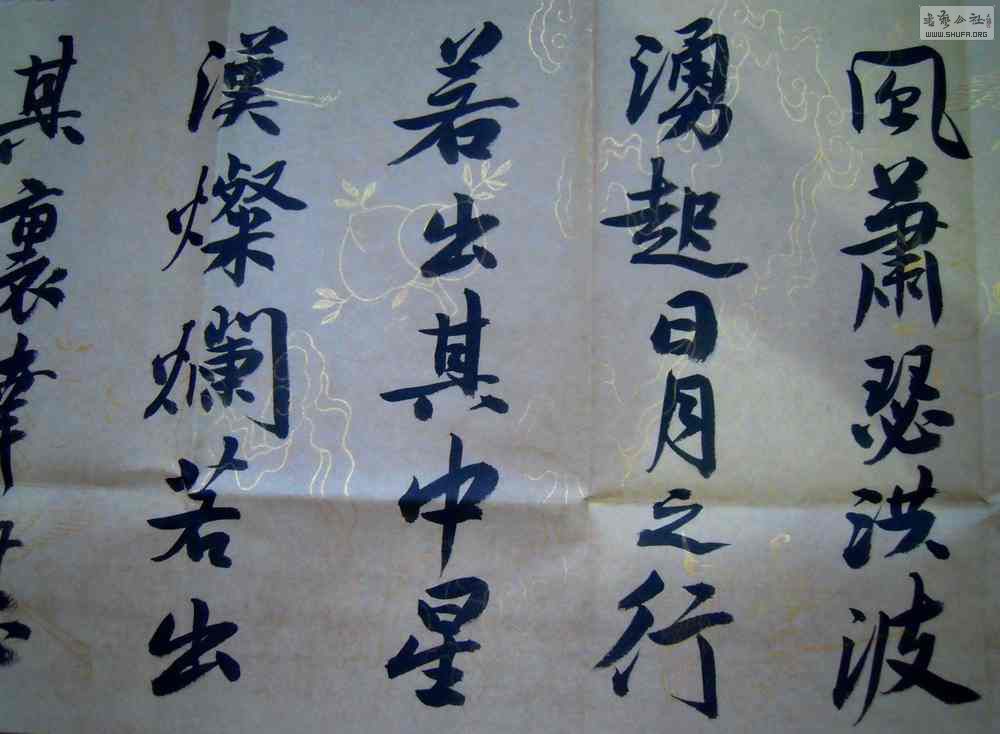 風蕭瑟洪波
湧起日月之
行
若出其中星
漢燦爛若出
其裏幸甚
WWW.SHUFA.ORG